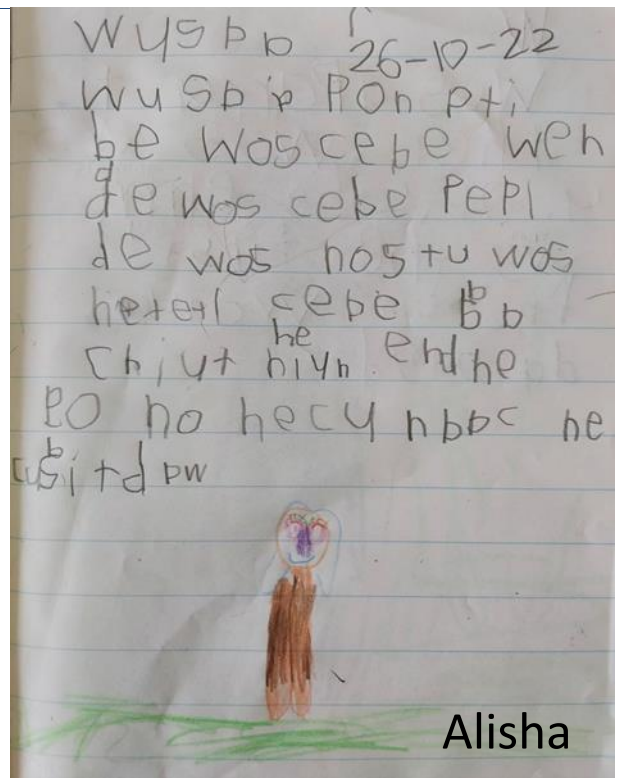 wysbb 26-10-22
wusbb pon pti
be wos cebe weh
de wos cebe pepl
de wos nostu wos
hetetl cebe bb
chiyt he niyn. end he
po no hecy nbbc he
cusitd bw
Alisha